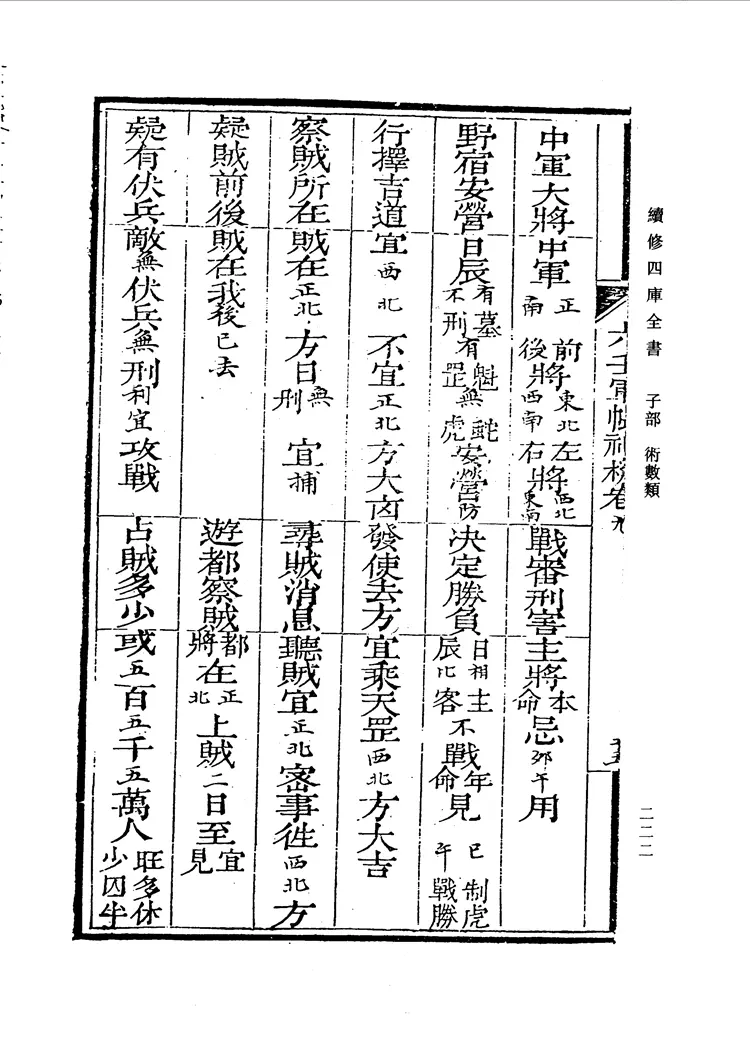 續修四庫全書 子部 術數類
二二二
六壬軍帳神機卷
中軍大將中軍正南前將東北後將西南左將西北右將東南戰審刑害主將本命忌卯午用
野宿安營日辰有墓不刑有魁罡無蛇虎安營防決定勝負日相辰比主客不戰年命見巳午制虎戰勝
行擇吉道宜西北不宜正北方大凶發使去方宜乘天罡西北方大吉
察賊所在賊在正北方日無刑宜捕尋賊消息聽賊宜正北密事徃西北方
疑賊前後賊在我後已去遊都察賊都將在正北上賊二日至宜見
疑有伏兵敵無伏兵無刑利宜攻戰占賊多少或五百五千五萬人旺多休少囚半